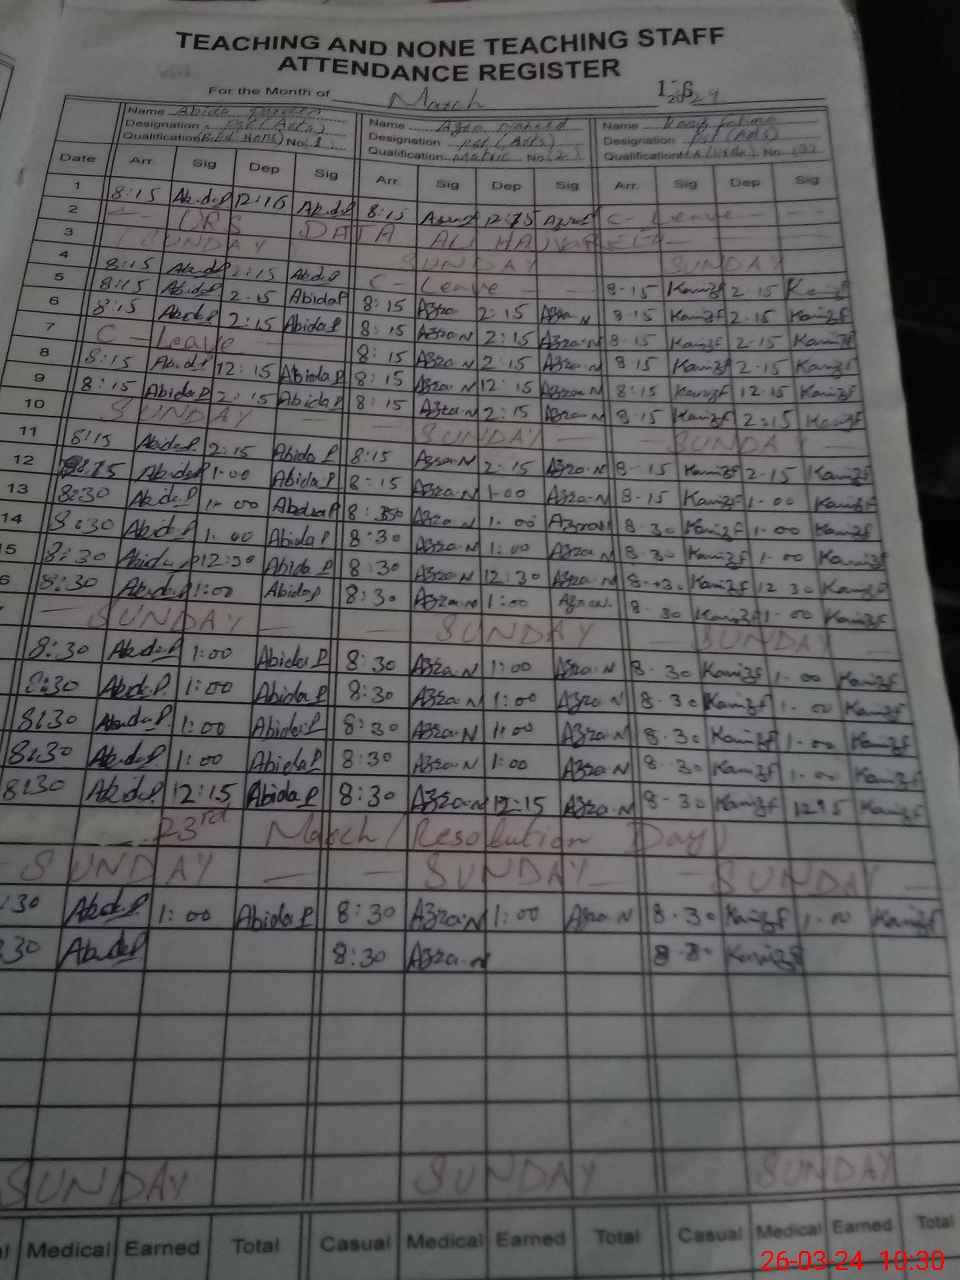 TEACHING AND NONE TEACHING STAFF
ATTENDANCE REGISTER
For the Month of March
Name Abida Name Name
Designation PST (Acts) Designation PST (Acts) Designation PST (Acts)
Qualification No. 1 Qualification Matric No. 2 Qualification No.
Date Arr. Sig Dep Sig Arr. Sig Dep Sig Arr. Sig Dep Sig
1 8:15 Abida P Abida P 8:15 C - Leave
2 DATA ALI HAJVERI
3 SUNDAY SUNDAY SUNDAY
4 8:15 Abida P Abida P C - Leave 8-15 Kanizf 2-15
5 8:15 Abida P 2:15 Abida P 8:15 Azra 2:15 Azra-N 8-15 Kanizf 2-15 Kanizf
6 8:15 Abida P 2:15 Abida P 8:15 Azra-N 2:15 Azra-N 8-15 Kanizf 2-15 Kanizf
7 C - Leave 8:15 Azra-N 2:15 Azra-N 8-15 Kanizf 2-15 Kanizf
8 8:15 Abida P 12:15 Abida P 8:15 Azra-N 12:15 Azra-N 8:15 Kanizf 12-15 Kanizf
9 8:15 Abida P 2:15 Abida P 8:15 Azra-N 2:15 Azra-N 8-15 Kanizf 2:15 Kanizf
10 SUNDAY SUNDAY SUNDAY
11 8:15 Abida P 2:15 Abida P 8:15 Azra-N 2:15 Azra-N 8-15 Kanizf 2-15 Kanizf
12 Abida P 1-00 Abida P 8:15 Azra-N 1-00 Azra-N 8-15 Kanizf 1-00 Kanizf
13 8:30 Abida P 1-00 Abida P Azra-N 1-00 Azra-N 8-30 Kanizf 1-00 Kanizf
14 8:30 Abida P 1:00 Abida P 8:30 Azra-N 1:00 Azra-N 8-30 Kanizf 1-00 Kanizf
5 8:30 Abida P 12:30 Abida P 8:30 Azra-N 12:30 Azra-N 8-30 Kanizf 12 30 Kanizf
6 8:30 Abida P 1:00 Abida P 8:30 Azra-N 1:00 Azra-N 8-30 Kanizf 1-00 Kanizf
SUNDAY SUNDAY SUNDAY
8:30 Abida P 1:00 Abida P 8:30 Azra-N 1:00 Azra-N 8-30 Kanizf 1-00 Kanizf
8:30 Abida P 1:00 Abida P 8:30 Azra-N 1:00 Azra-N 8-30 Kanizf 1-00 Kanizf
8:30 Abida P 1:00 Abida P 8:30 Azra-N 1:00 Azra-N 8-30 Kanizf 1-00 Kanizf
8:30 Abida P 1:00 Abida P 8:30 Azra-N 1:00 Azra-N 8-30 Kanizf 1-00 Kanizf
8:30 Abida P 12:15 Abida P 8:30 Azra-N 12:15 Azra-N 8-30 Kanizf Kanizf
23rd March (Resolution Day)
SUNDAY SUNDAY SUNDAY
:30 Abida P 1:00 Abida P 8:30 Azra-N 1:00 Azra-N 8-30 Kanizf 1-00 Kanizf
:30 Abida P 8:30 Azra-N Kanizf
SUNDAY SUNDAY SUNDAY
Medical Earned Total Casual Medical Earned Total Casual Medical Earned Total
26-03-24 10:30